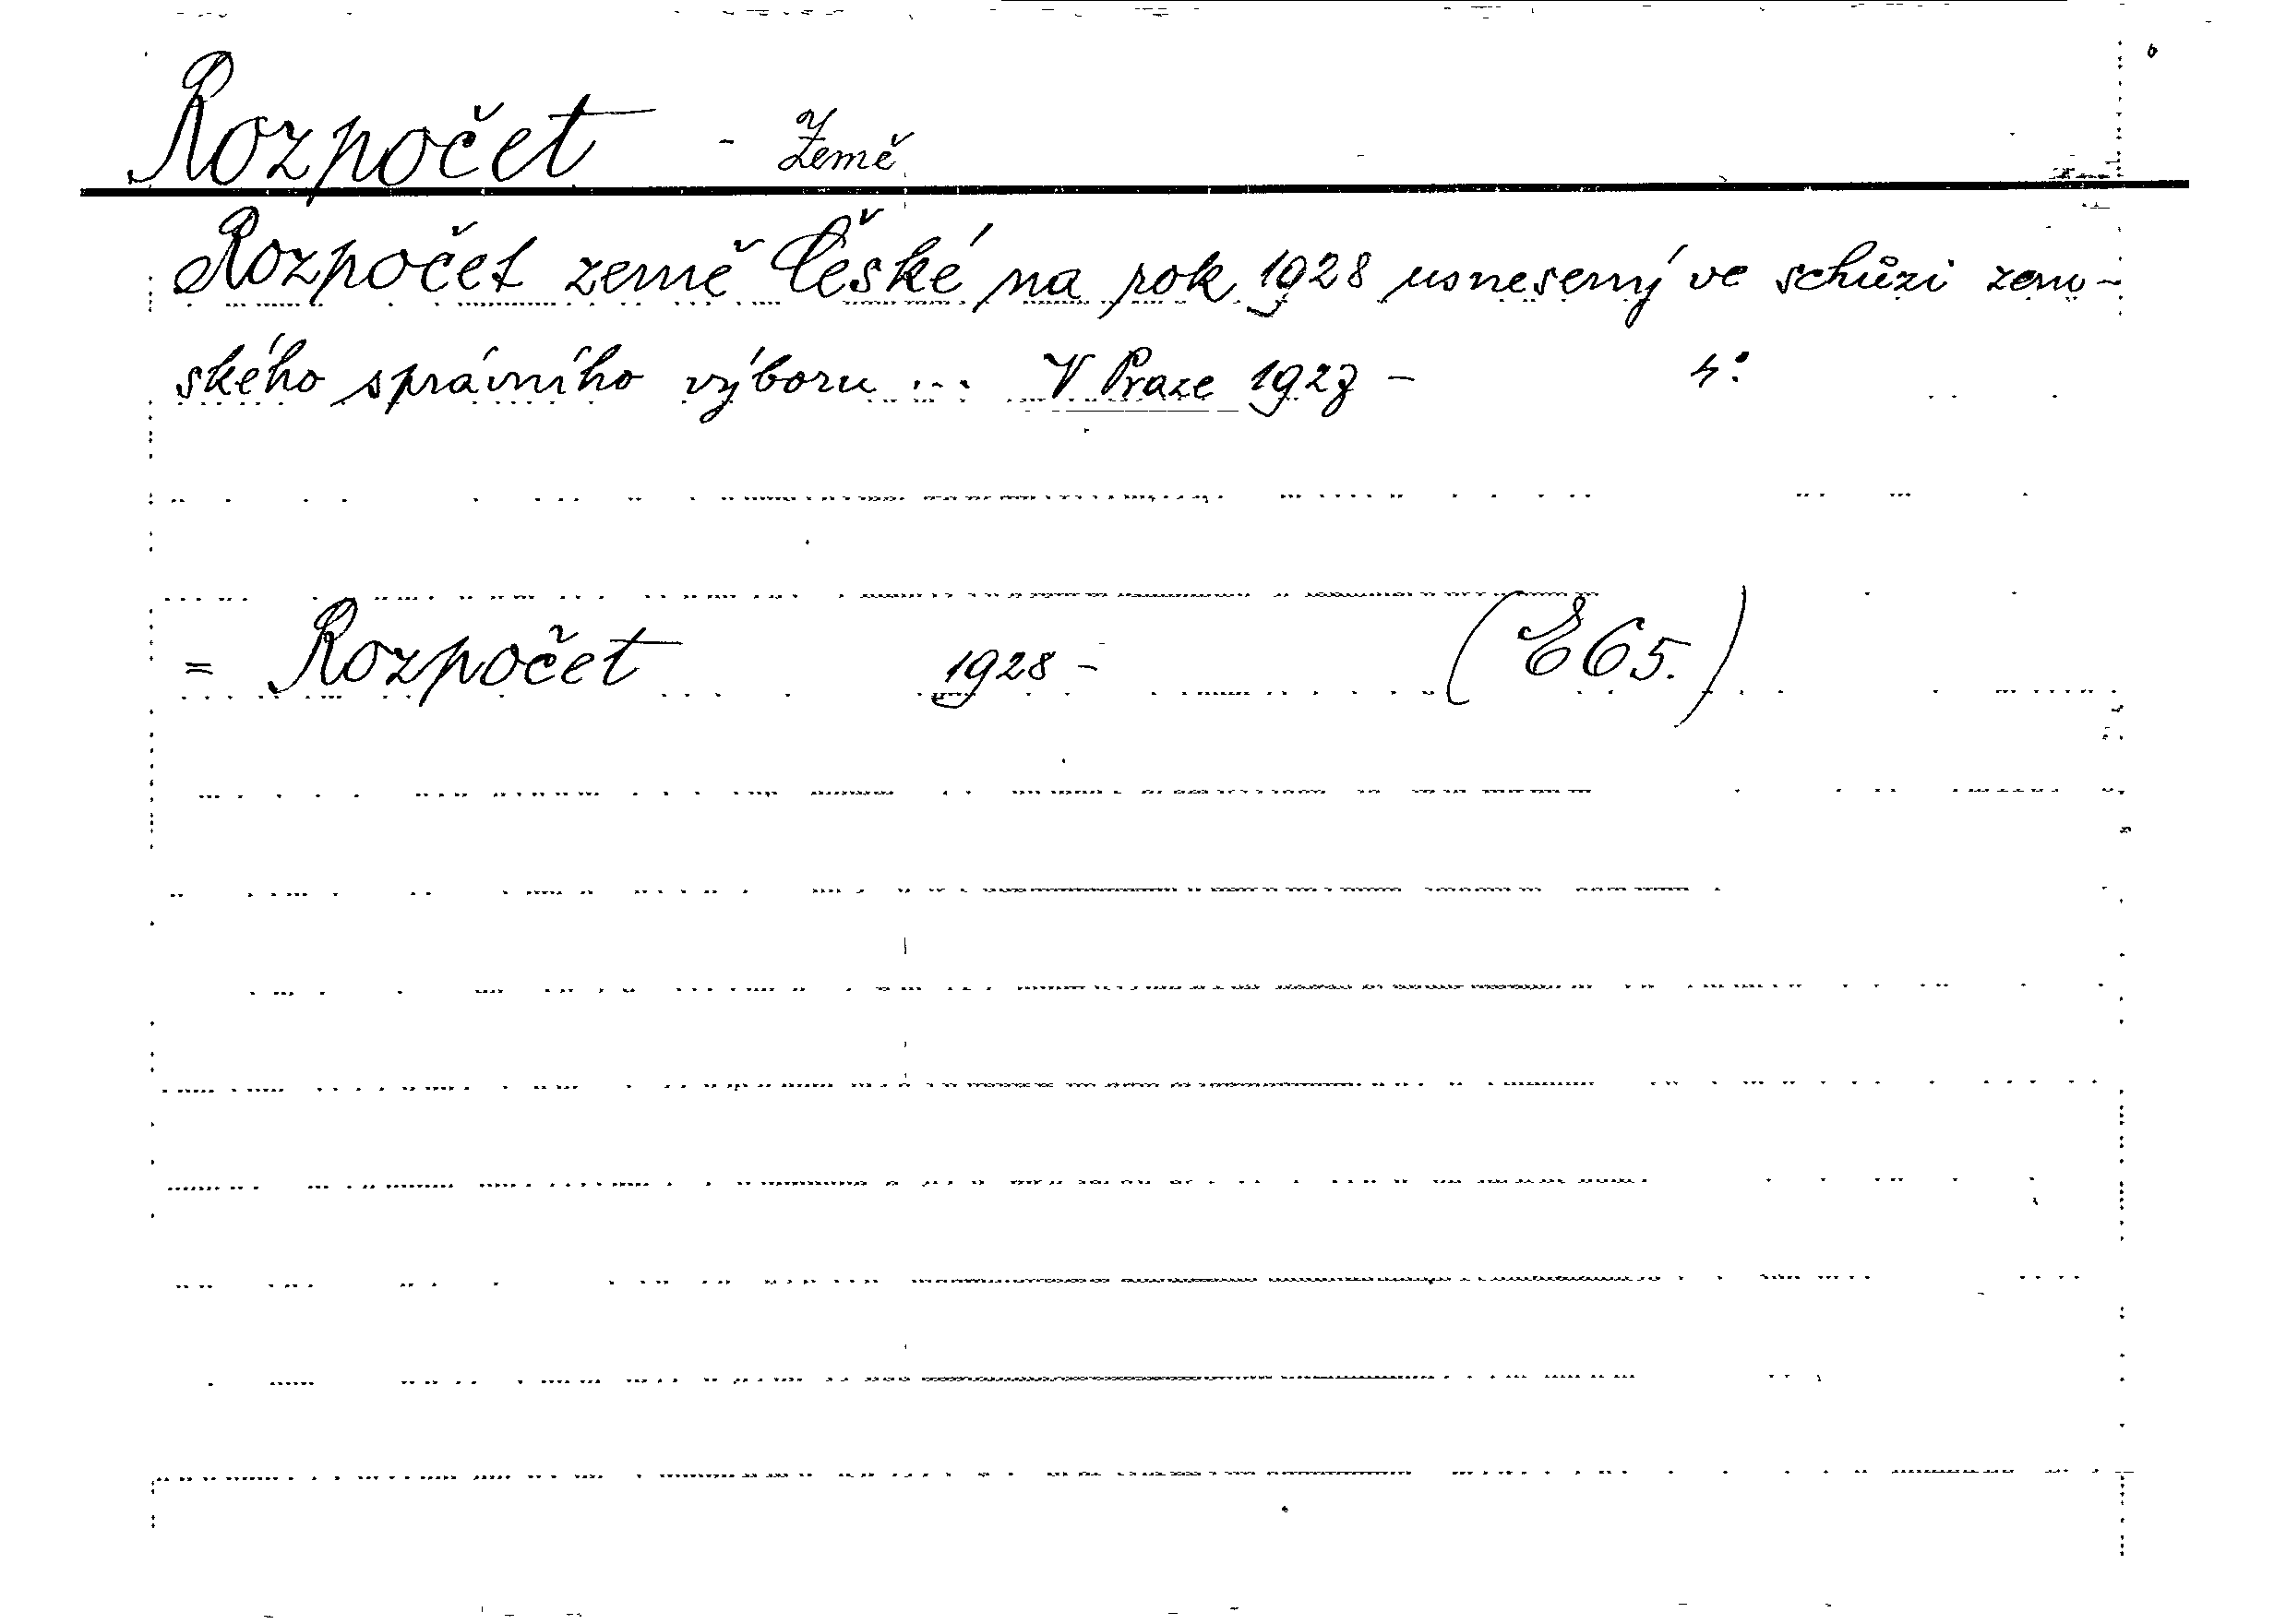 Rozpočet - Země
Rozpočet země České na rok 1928 usnesený ve schůzi zem-
ského správního výboru ... V Praze 1927 - 4°.
= Rozpočet 1928 - (E 65.)